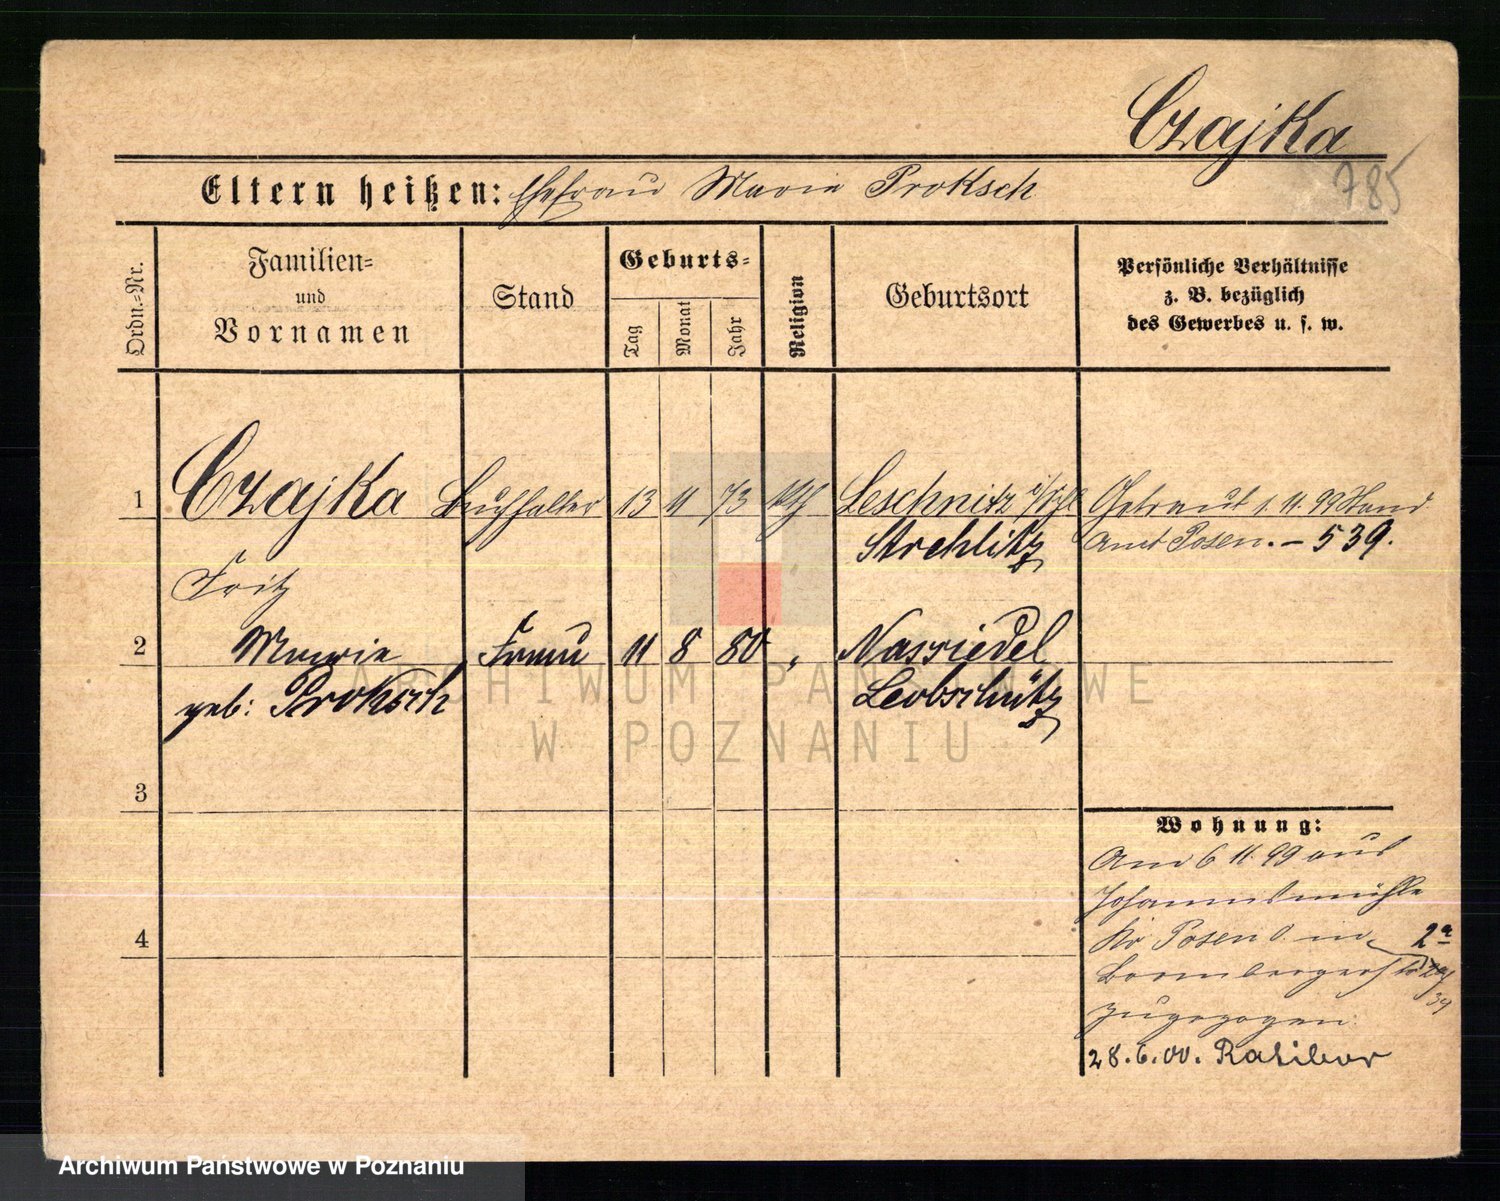 Czajka
785
Eltern heißen: Ehefrau Marie Proksch
Ordn.-Nr.
Familien-
und
Vornamen
Stand
Geburts-
Tag
Monat
Jahr
Religion
Geburtsort
Persönliche Verhältnisse
z. B. bezüglich
des Gewerbes u. s. w.
1 Czajka Buchhalter 13 11 73 kth Leschnitz Getraut 1. 11. 99 Stand
Strehlitz Amt Posen. – 539.
Fritz
2 Marie Frau 11 8 80 " Nassiedel
geb: Proksch Leobschütz
3
Wohnung:
Am 6 11. 99 aus
Johannismühle
4 Kr Posen O. in 2a
Brombergerstr
zugezogen.
28.6.00. Ratibor
ARCHIWUM PAŃSTWOWE
W POZNANIU
Archiwum Państwowe w Poznaniu